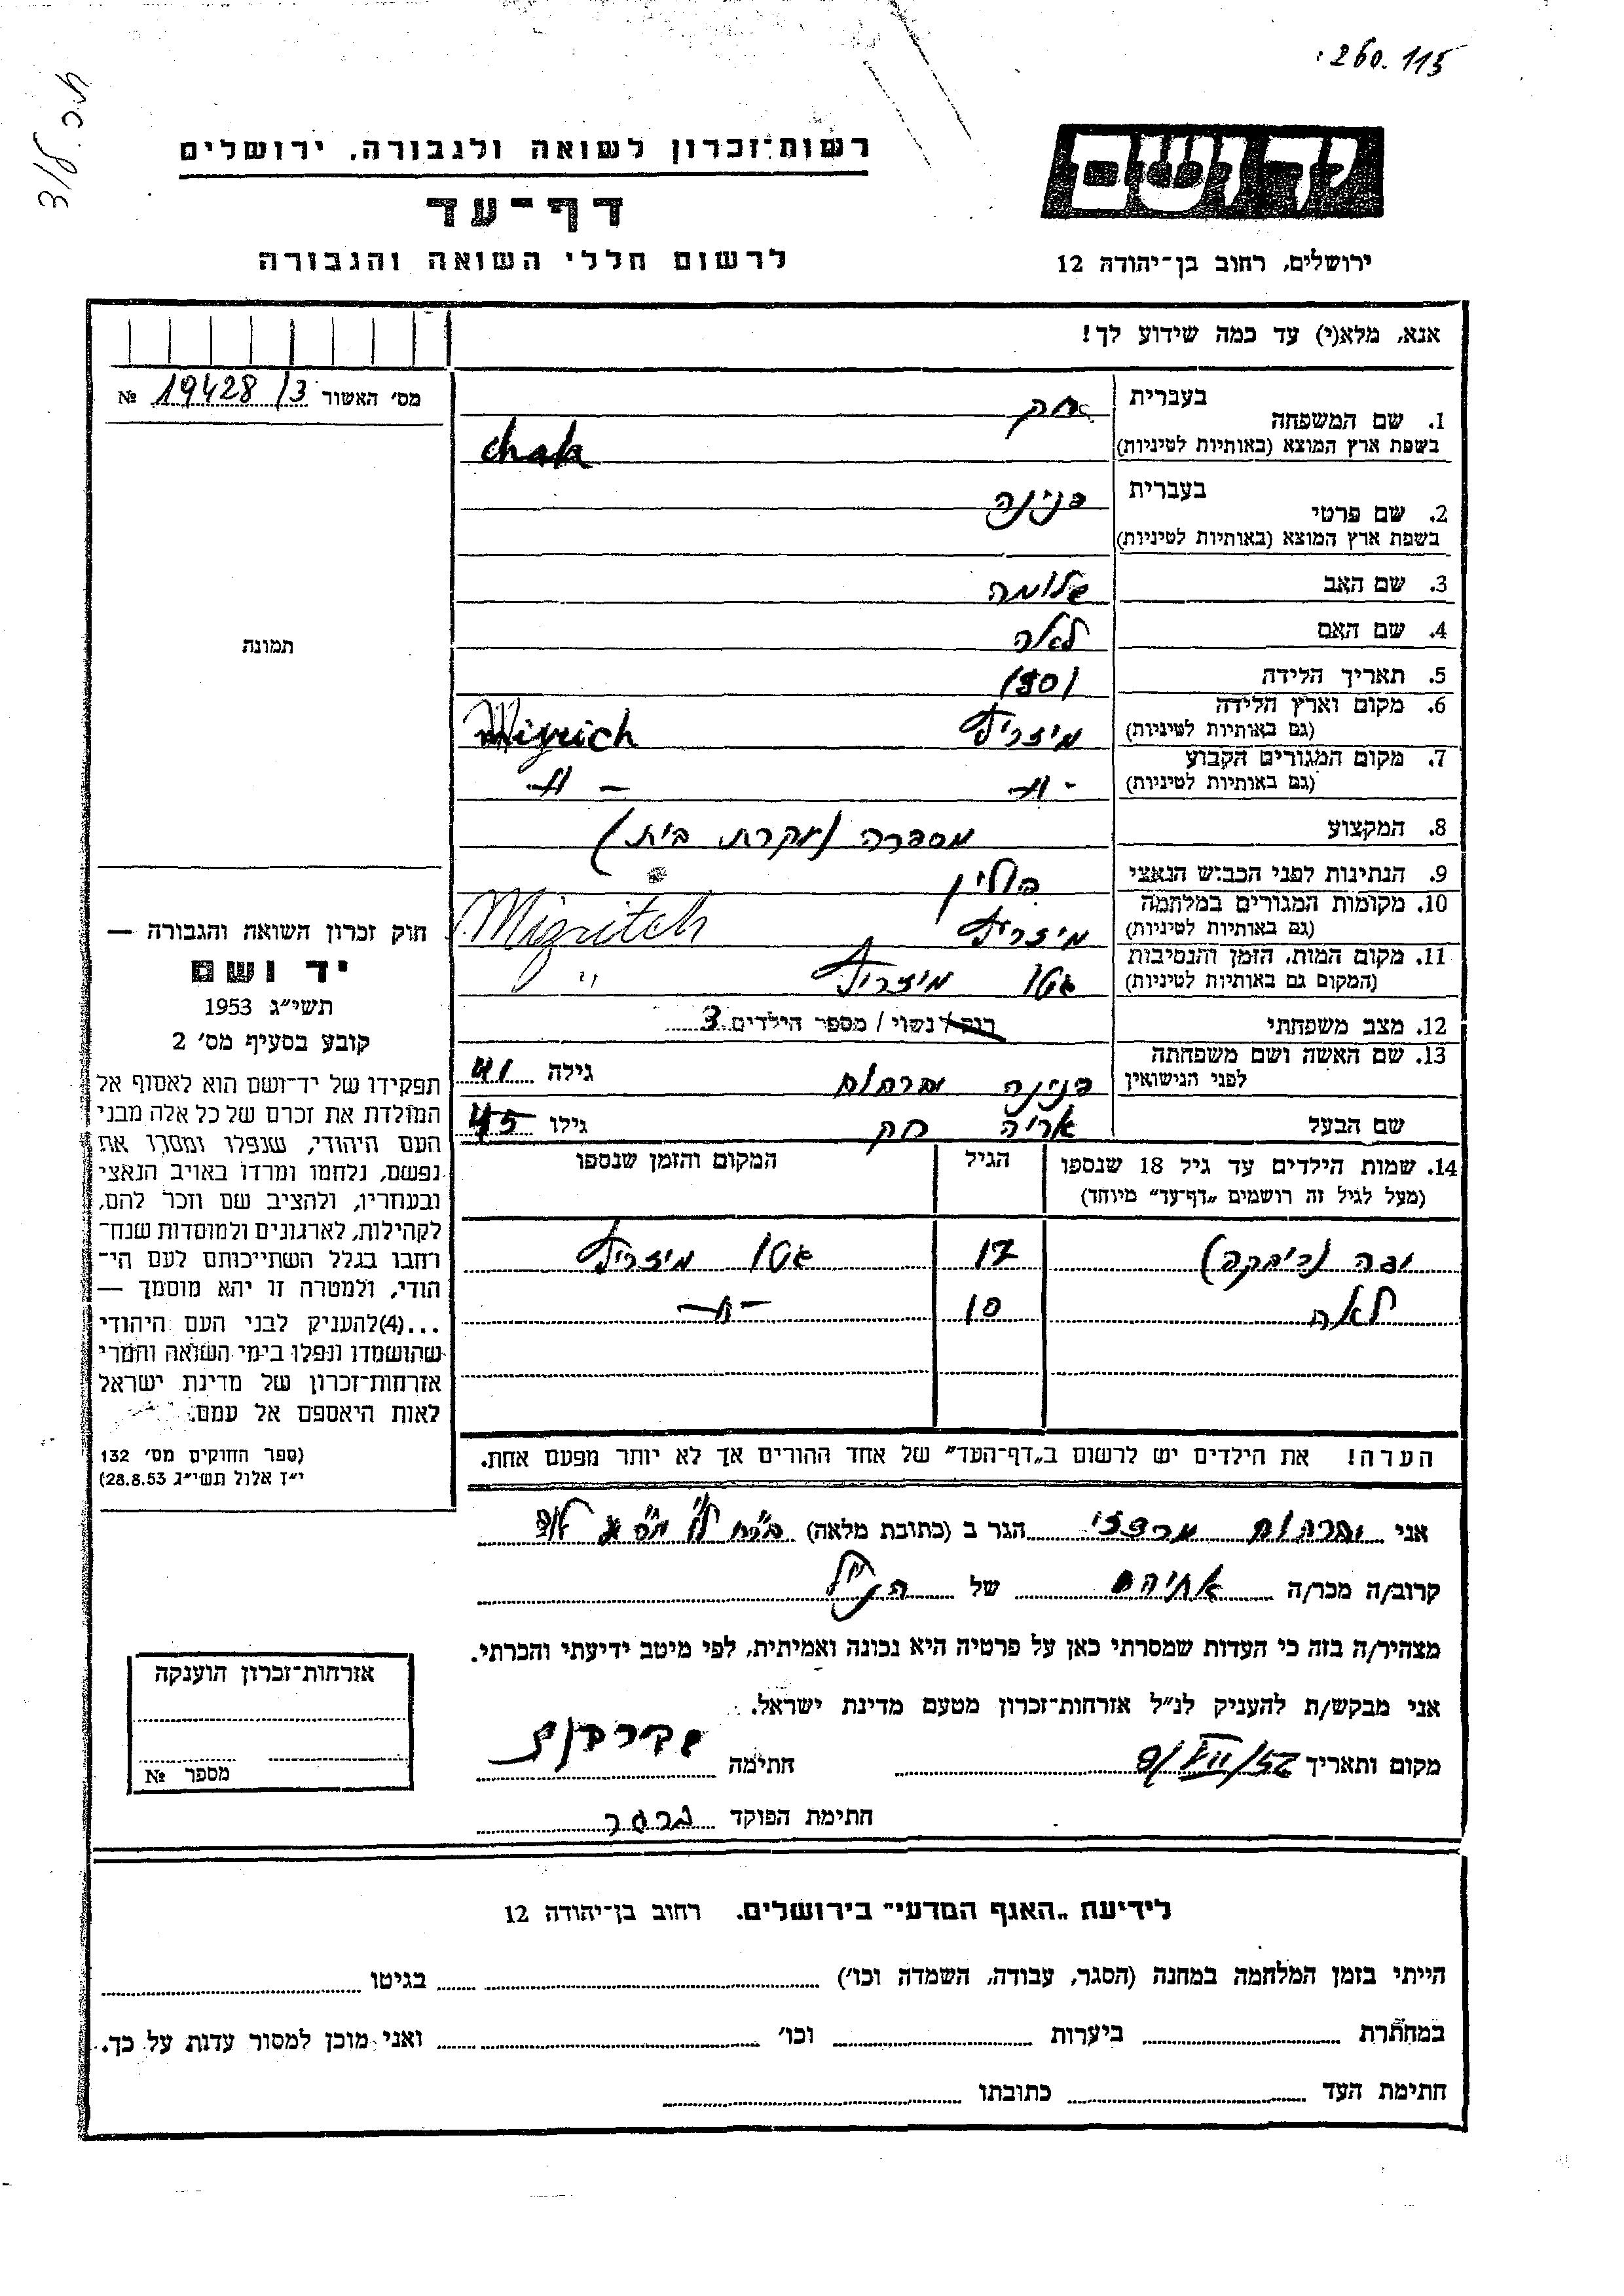 260.115
רשות־זכרון לשואה ולגבורה, ירושלים
דף־עד
לרשום חללי השואה והגבורה
יד ושם
ירושלים, רחוב בן־יהודה 12
אנא, מלא(י) עד כמה שידוע לך!
מס׳ האשור № 19428/3
1. שם המשפחה בעברית חק
בשפת ארץ המוצא (באותיות לטיניות) chak
2. שם פרטי בעברית פנינה
בשפת ארץ המוצא (באותיות לטיניות)
3. שם האב שלומה
4. שם האם לאה
5. תאריך הלידה 1901
6. מקום וארץ הלידה
(גם באותיות לטיניות) מיזריץ
7. מקום המגורים הקבוע
(גם באותיות לטיניות) -״- -״-
8. המקצוע מספרה (עקרת בית)
9. הנתינות לפני הכבוש הנאצי פולין
10. מקומות המגורים במלחמה
(גם באותיות לטיניות) מיזריץ Mizritch
11. מקום המות, הזמן והנסיבות
(המקום גם באותיות לטיניות) גטו מיזריץ ״
12. מצב משפחתי רווק / נשוי / מספר הילדים 3
13. שם האשה ושם משפחתה
לפני הנישואין פנינה גילה 41
שם הבעל אריה חק גילו 45
14. שמות הילדים עד גיל 18 שנספו הגיל המקום והזמן שנספו
(מעל לגיל זה רושמים „דף־עד״ מיוחד)
(ריבקה) 17 גטו מיזריץ
לאה 10 -״-
הערה! את הילדים יש לרשום ב„דף־העד״ של אחד ההורים אך לא יותר מפעם אחת.
תמונה
חוק זכרון השואה והגבורה —
יד ושם
תשי״ג 1953
קובע בסעיף מס׳ 2
תפקידו של יד־ושם הוא לאסוף אל
המולדת את זכרם של כל אלה מבני
העם היהודי, שנפלו ומסרו את
נפשם, נלחמו ומרדו באויב הנאצי
ובעוזריו, ולהציב שם וזכר להם,
לקהילות, לארגונים ולמוסדות שנח־
רחבו בגלל השתייכותם לעם הי־
הודי, ולמטרה זו יהא מוסמך —
...(4)להעניק לבני העם היהודי
שהושמדו ונפלו בימי השואה והמרי
אזרחות־זכרון של מדינת ישראל
לאות היאספם אל עמם.
(ספר החוקים מס׳ 132
י״ז אלול תשי״ג 28.8.53)
אני מרדכי הגר ב (כתובת מלאה)
קרוב/ה מכר/ה אחיה של הנ״ל
מצהיר/ה בזה כי העדות שמסרתי כאן על פרטיה היא נכונה ואמיתית, לפי מיטב ידיעתי והכרתי.
אני מבקש/ת להעניק לנ״ל אזרחות־זכרון מטעם מדינת ישראל.
מקום ותאריך חתימה
חתימת הפוקד
אזרחות־זכרון הוענקה
מספר №
לידיעת „האגף המדעי״ בירושלים, רחוב בן־יהודה 12
הייתי בזמן המלחמה במחנה (הסגר, עבודה, השמדה וכו׳) בגיטו
במחתרת ביערות וכו׳ ואני מוכן למסור עדות על כך.
חתימת העד כתובתו